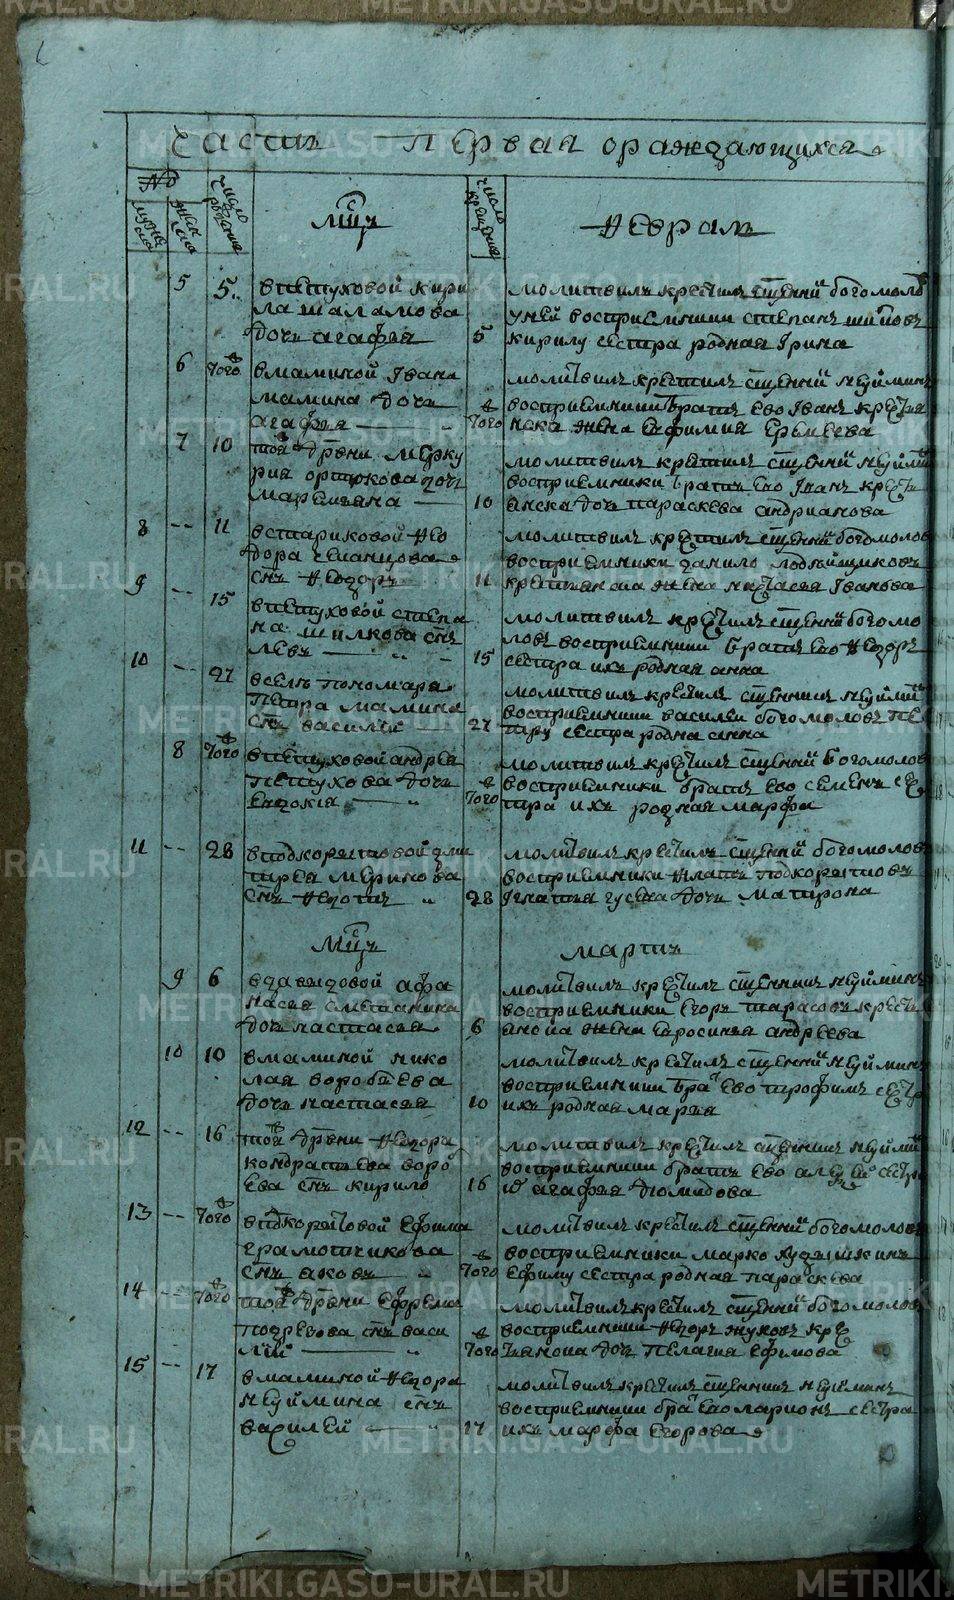 METRIKI.GASO-URAL.RU
часть первая о раждающихся
№
мужеска
женска
число рождения
мцъ
число крещения
феврал
5 5. впетуховой кири
ла шаламова
дочь агафья 5
молитвилъ крестилъ сщенникъ богомоло
у ней восприемники степанъ
кирилу сестра родная Ирина
6 того в маминой Ивана
мамина дочь
агафья
молитвилъ крестилъ сщенникъ неуймин
восприемники братъ ево Іванъ крестья
того нска жена евфимия еремеева
7 10 тоя дрвни мерку
рия ортюкова дочь
маремьяна
молитвилъ крестилъ сщенникъ неуймин
восприемники братъ ево Іванъ кресть
10 янска дочь параскева андриянова
8 -- 11 встариковой фео
дора
снъ феодоръ
молитвилъ крестилъ сщенникъ богомолов
восприемники данило
11 крестьянска жена настасья Іванова
9 -- 15 впетуховой степа
на шилкова снъ
левъ
молитвилъ крестилъ сщенникъ богомо
ловъ восприемники братъ ево феодоръ
15 сестра ихъ родная анна
10 -- 27 вселъ пономаря
петра мамина
снъ василей
молитвилъ крестилъ сщенникъ неуймин
восприемники василей богомоловъ пе
27 тру сестра родна анна
8 того впетуховой андрея
петухова дочь
евдокія
молитвилъ крестилъ сщенникъ богомолов
восприемники братъ ево семенъ сес
того тра ихъ родная марфа
11 -- 28 вподкорытовой дми
трея меринова
снъ федотъ
молитвилъ крестилъ сщенникъ богомолов
восприемники ипатъ подкорытовъ
28 Ігнатья гусева дочь матрона
мцъ мартъ
9 6 вдавыдовой афа
насья сметанина
дочь настасья
молитвилъ крестилъ сщенникъ неуйминъ
восприемники егоръ тарасовъ кресть
6 янска жена евросинья андреева
10 10 вмаминой нико
лая воробьева
дочь настасья
молитвилъ крестилъ сщенникъ неуймин
восприемники братъ ево трофимъ сестр
10 ихъ родная марья
12 -- 16 тоя дрвни феодора
кондратьева воро
ева снъ кирило
молитвилъ крестилъ сщенникъ неуймин
восприемники братъ ево алексей сестра
16 агафья дюмидова
13 -- того вподкорытовой ефима
грамотчикова
снъ яковъ
молитвилъ крестилъ сщенникъ богомоловъ
восприемники марко худышкинъ
того ефиму сестра родная параскева
14 -- того тоя дрвни ефрема
подрезова снъ васи
лий
молитвилъ крестилъ сщенникъ богомоловъ
восприемники феодоръ жуковъ крес
того тьянска дочь пелагия ефимова
15 -- 17 вмаминой феодора
неуймина снъ
василей
молитвилъ крестилъ сщенникъ неуйминъ
восприемники братъ ево ларионъ сестра
17 ихъ марфа егорова